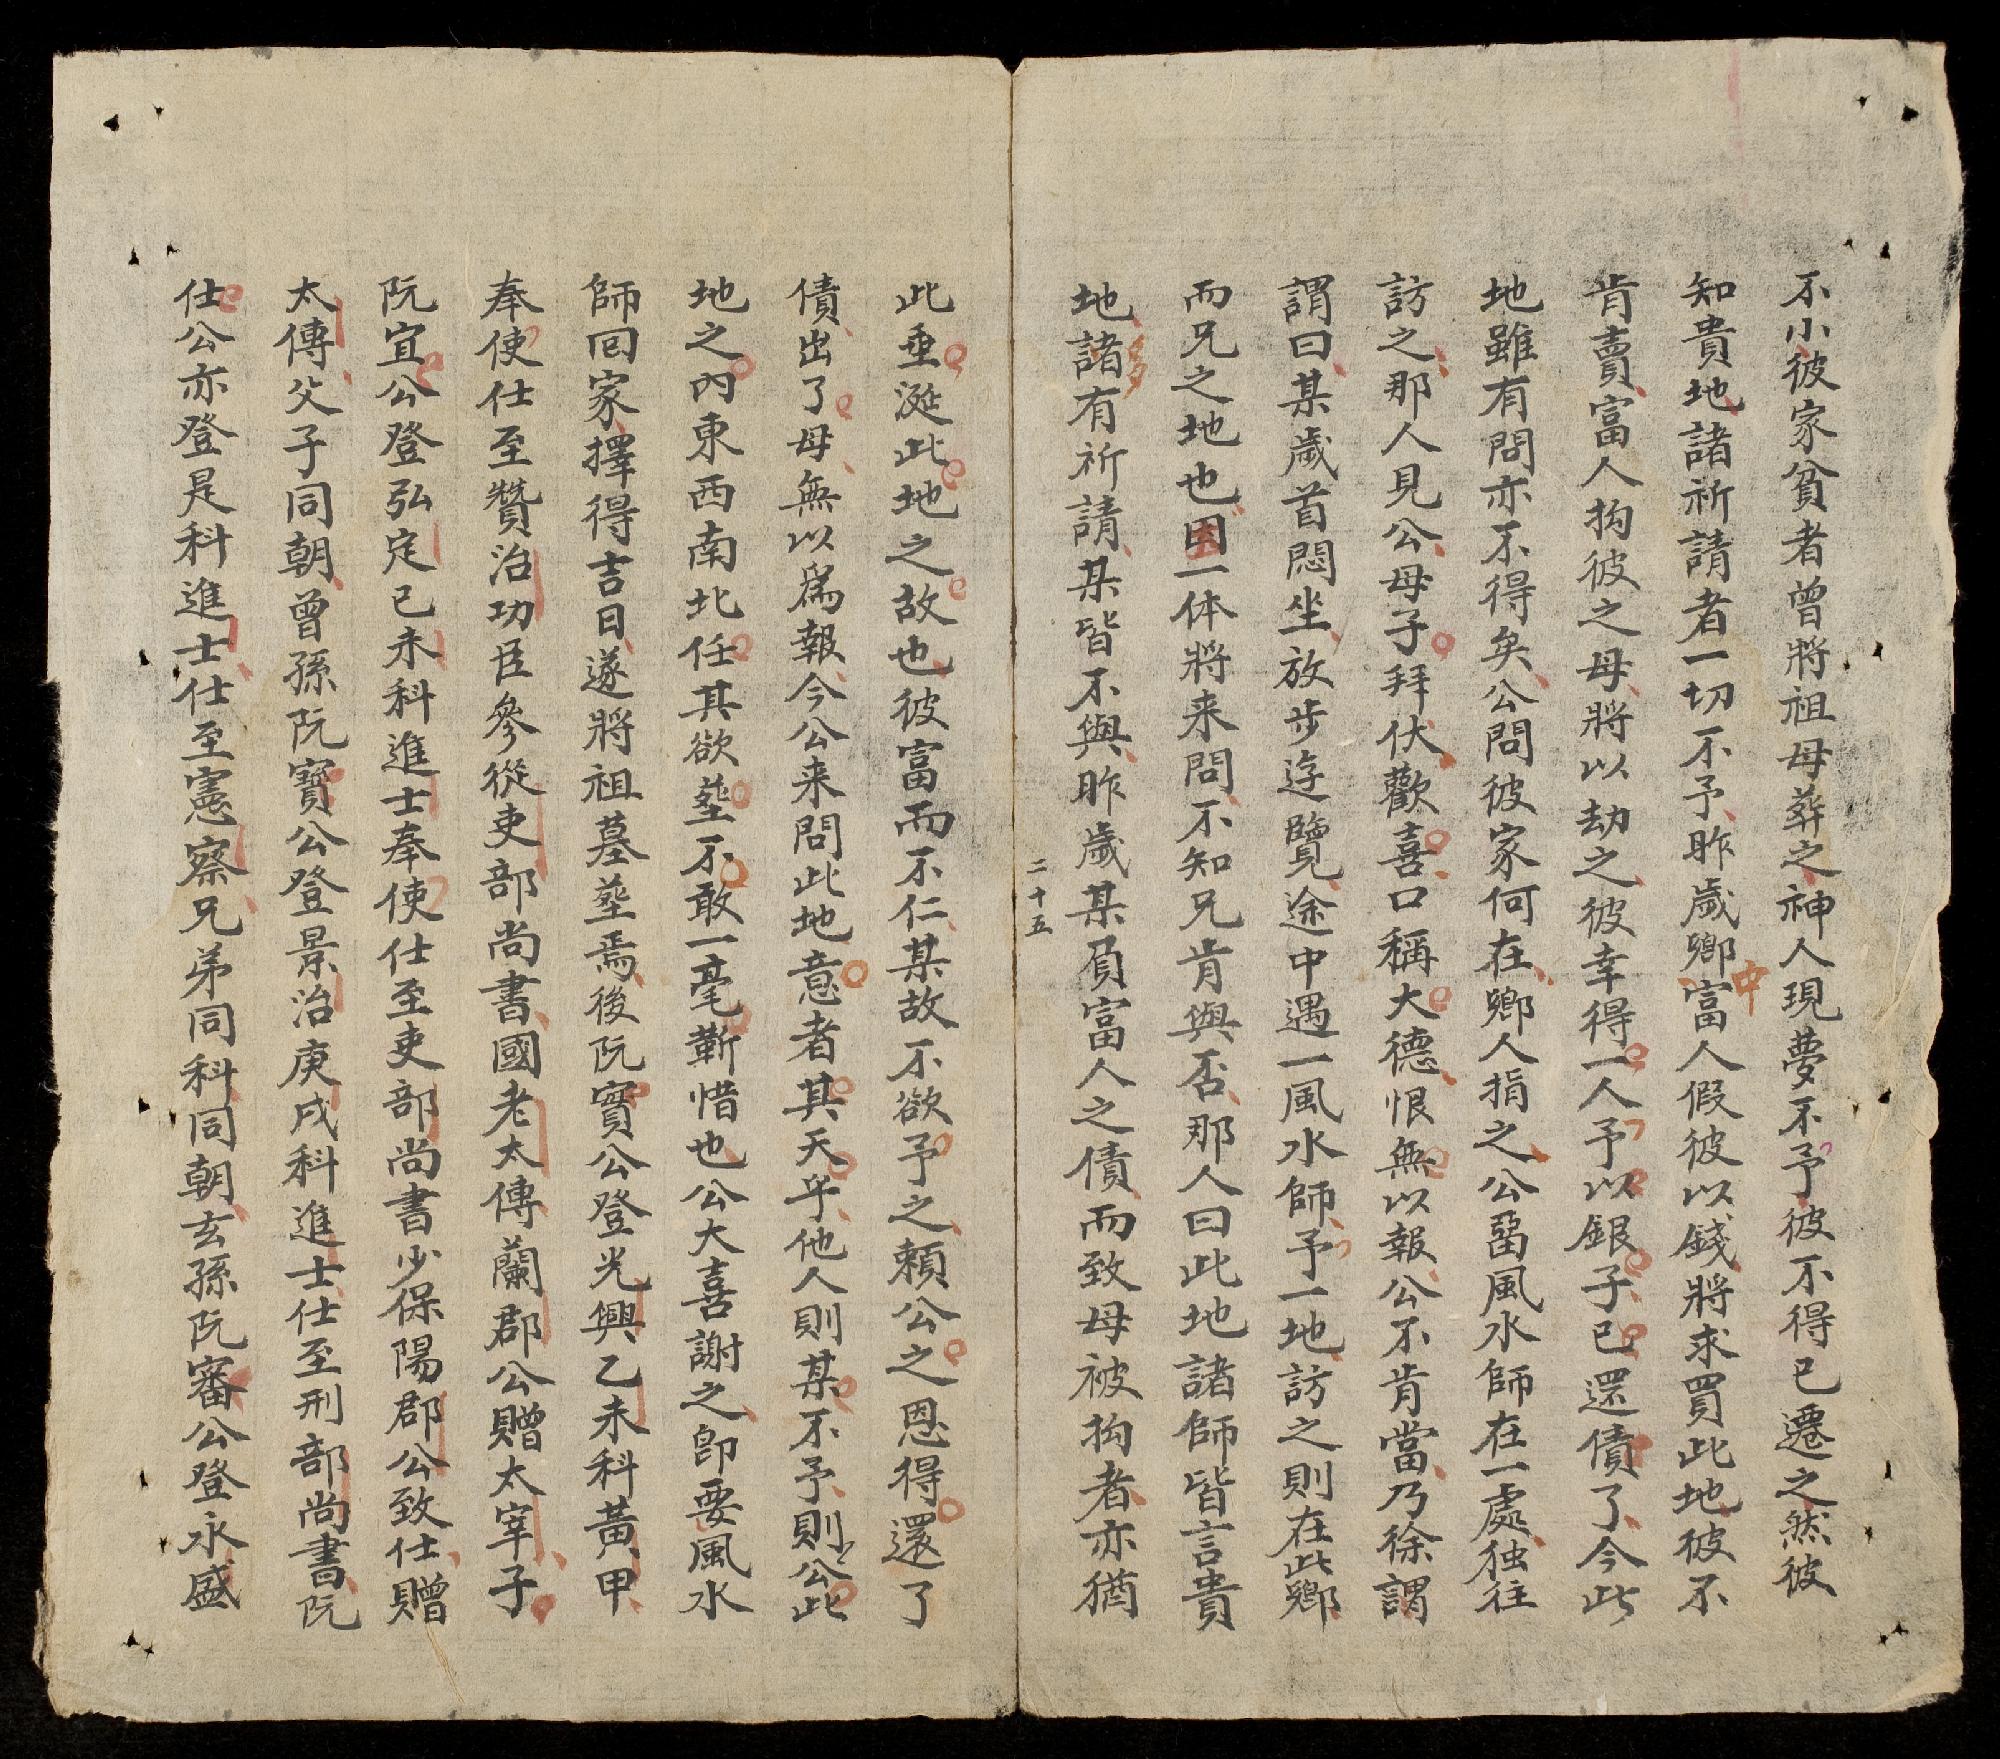 不小彼家貧者曾將祖母葬之神人現夢不予彼不得已遷之然彼
知貴地諸祈請者一切不予昨歲鄉中富人假彼以錢將求買此地彼不
肯賣富人拘彼之母將以劫之彼幸得一人予以銀子已還債了今此
地雖有問亦不得矣公問彼家何在鄉人指之公畱風水師在一處独往
訪之那人見公母子拜伏歡喜口稱大德恨無以報公不肯當乃徐謂
謂曰某歲首悶坐放步逰覽途中遇一風水師予一地訪之則在此鄉
而兄之地也因一体將来問不知兄肯與否那人曰此地諸師皆言貴
地諸有祈請某皆不與昨歲某負富人之債而致母被拘者亦猶
二十五
此垂涎此地之故也彼富而不仁某故不欲予之賴公之恩得還了
債出了母無以爲報今公来問此地意者其天乎他人則某不予則公此
地之內東西南北任其欲塟不敢一毫蘄惜也公大喜謝之卽要風水
師回家擇得吉日遂將祖墓塟焉後阮實公登光興乙未科黃甲
奉使仕至贊治功臣參從吏部尚書國老太傅蘭郡公贈太宰子
阮宜公登弘定己未科進士奉使仕至吏部尚書少保陽郡公致仕贈
太傅父子同朝曾孫阮寶公登景治庚戌科進士仕至刑部尚書阮
仕公亦登是科進士仕至憲察兄弟同科同朝玄孫阮審公登永盛